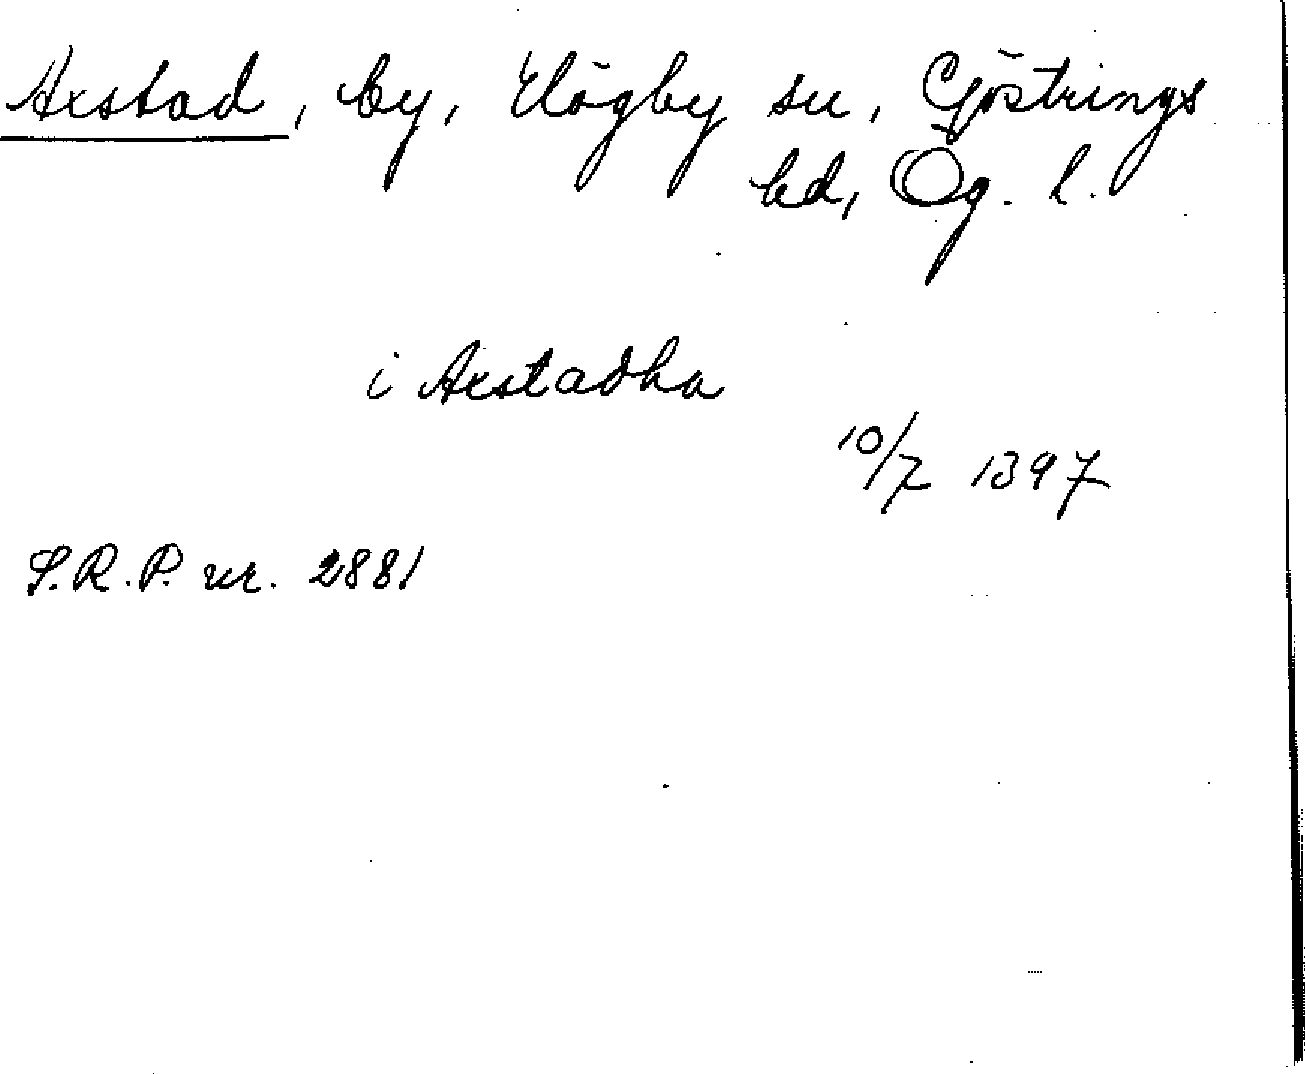 Axstad, by, Högby sn, Göstrings
hd, Ög. l.
i Axstadha
10/7 1397
S.R.P. nr. 2881